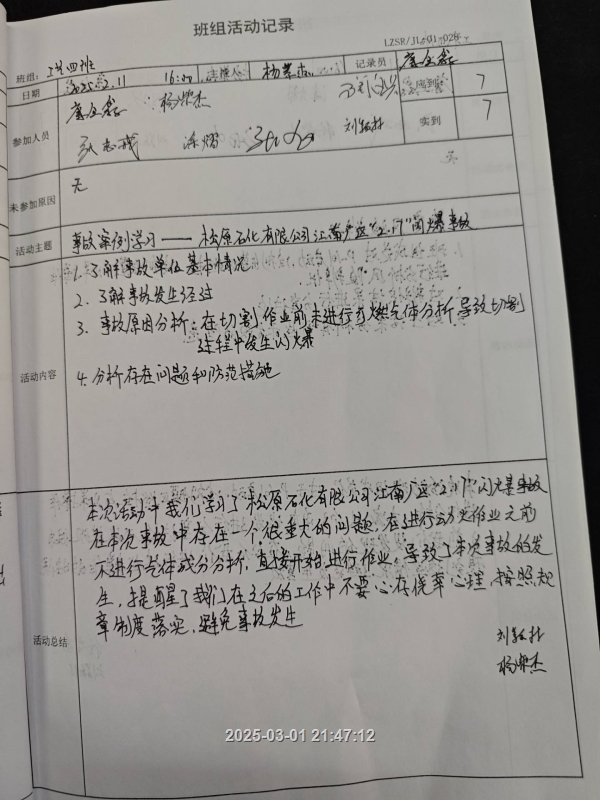 班组活动记录
LZSR/JL-01-026
班组: 工艺四班
日期 2025.2.11 16:00 主持人 杨荣杰 记录员
参加人员 杨荣杰 应到 7
张志戎 涂熠 刘敏杜 实到 7
未参加原因 无
活动主题 事故案例学习 —— 松原石化有限公司江南厂区“2.17”闪爆事故
活动内容
1. 了解事故单位基本情况
2. 了解事故发生经过
3. 事故原因分析: 在切割作业前未进行可燃气体分析,导致切割
过程中发生闪爆
4. 分析存在问题和防范措施
活动总结
本次活动中我们学习了松原石化有限公司江南厂区“2.17”闪爆事故
在本次事故中存在一个很重大的问题, 在进行动火作业之前
不进行气体成分分析, 直接开始进行作业, 导致了本次事故的发
生, 提醒了我们在之后的工作中不要心存侥幸心理, 按照规
章制度落实, 避免事故发生
杨荣杰
2025-03-01 21:47:12